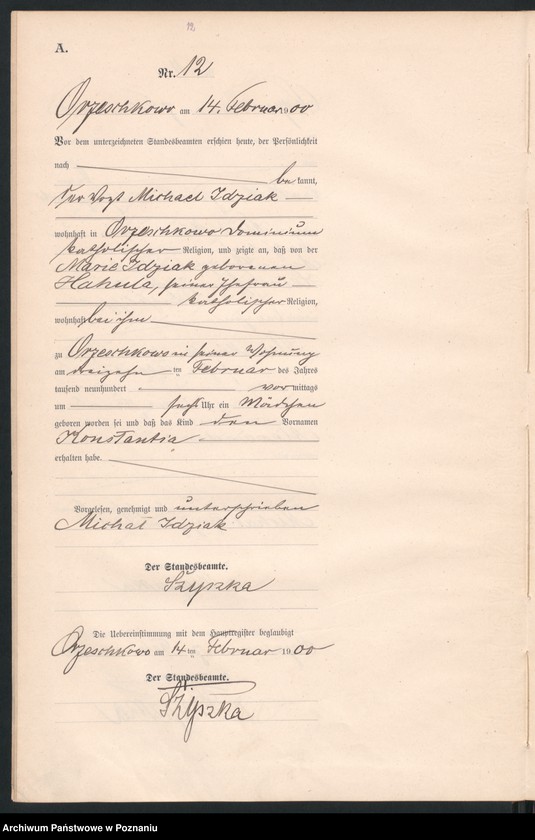 12
A.
Nr. 12
Orzeschkowo am 14. Februar 1900
Vor dem unterzeichneten Standesbeamten erschien heute, der Persönlichkeit
nach bekannt,
der Vogt Michael Idziak
wohnhaft in Orzeschkowo Dominium
katholischer Religion, und zeigte an, daß von der
Marie Idziak geborenen
Hakula, seiner Ehefrau
katholischer Religion,
wohnhaft bei ihm
zu Orzeschkowo in seiner Wohnung
am dreizehn ten Februar des Jahres
tausend neunhundert vor mittags
um sechs Uhr ein Mädchen
geboren worden sei und daß das Kind den Vornamen
Konstantia
erhalten habe.
Vorgelesen, genehmigt und unterschrieben
Michal Idziak
Der Standesbeamte.
Szyszka
Die Uebereinstimmung mit dem Hauptregister beglaubigt
Orzeschkowo am 14 ten Februar 1900
Der Standesbeamte.
Szyszka
Archiwum Państwowe w Poznaniu